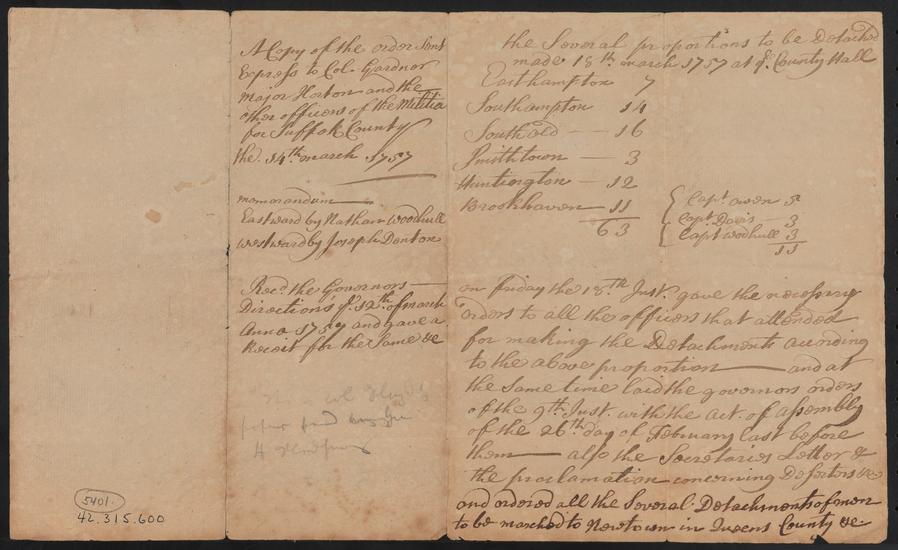 A Copy of the order Sent
Express to Col. Gardnor
Major Horton and the
other officers of the Militia
for Suffok County
the. 14th march 1757
memorandum
Eastward by Nathan Woodhull
westward by Joseph Denton
Recd. the Governors
Directions ye. 12th of march
Anno 1757 and gave a
Receit for the Same &c
5401.
42.315.600
the Several proportions to be Detached
made 18th march 1757 at ye. County Hall
Easthampton 7
Southampton 14
Southold — 16
Smithtown — 3
Huntington — 12
Brookhaven — 11
63
Capt. Owen 5
Capt. Davis — 3
Capt Woodhull 3
11
on Friday the 18th Inst. gave the necessary
orders to all the officers that attended
for making the Detachments according
to the above proportion — and at
the Same time laid the governors orders
of the 9th Inst. with the Act. of assembly
of the 26th day of February last before
them — also the Secretaries Letter &
the proclamation concerning Desertors &c
and ordered all the Several Detachments of men
to be marched to Newtown in Queens County &c